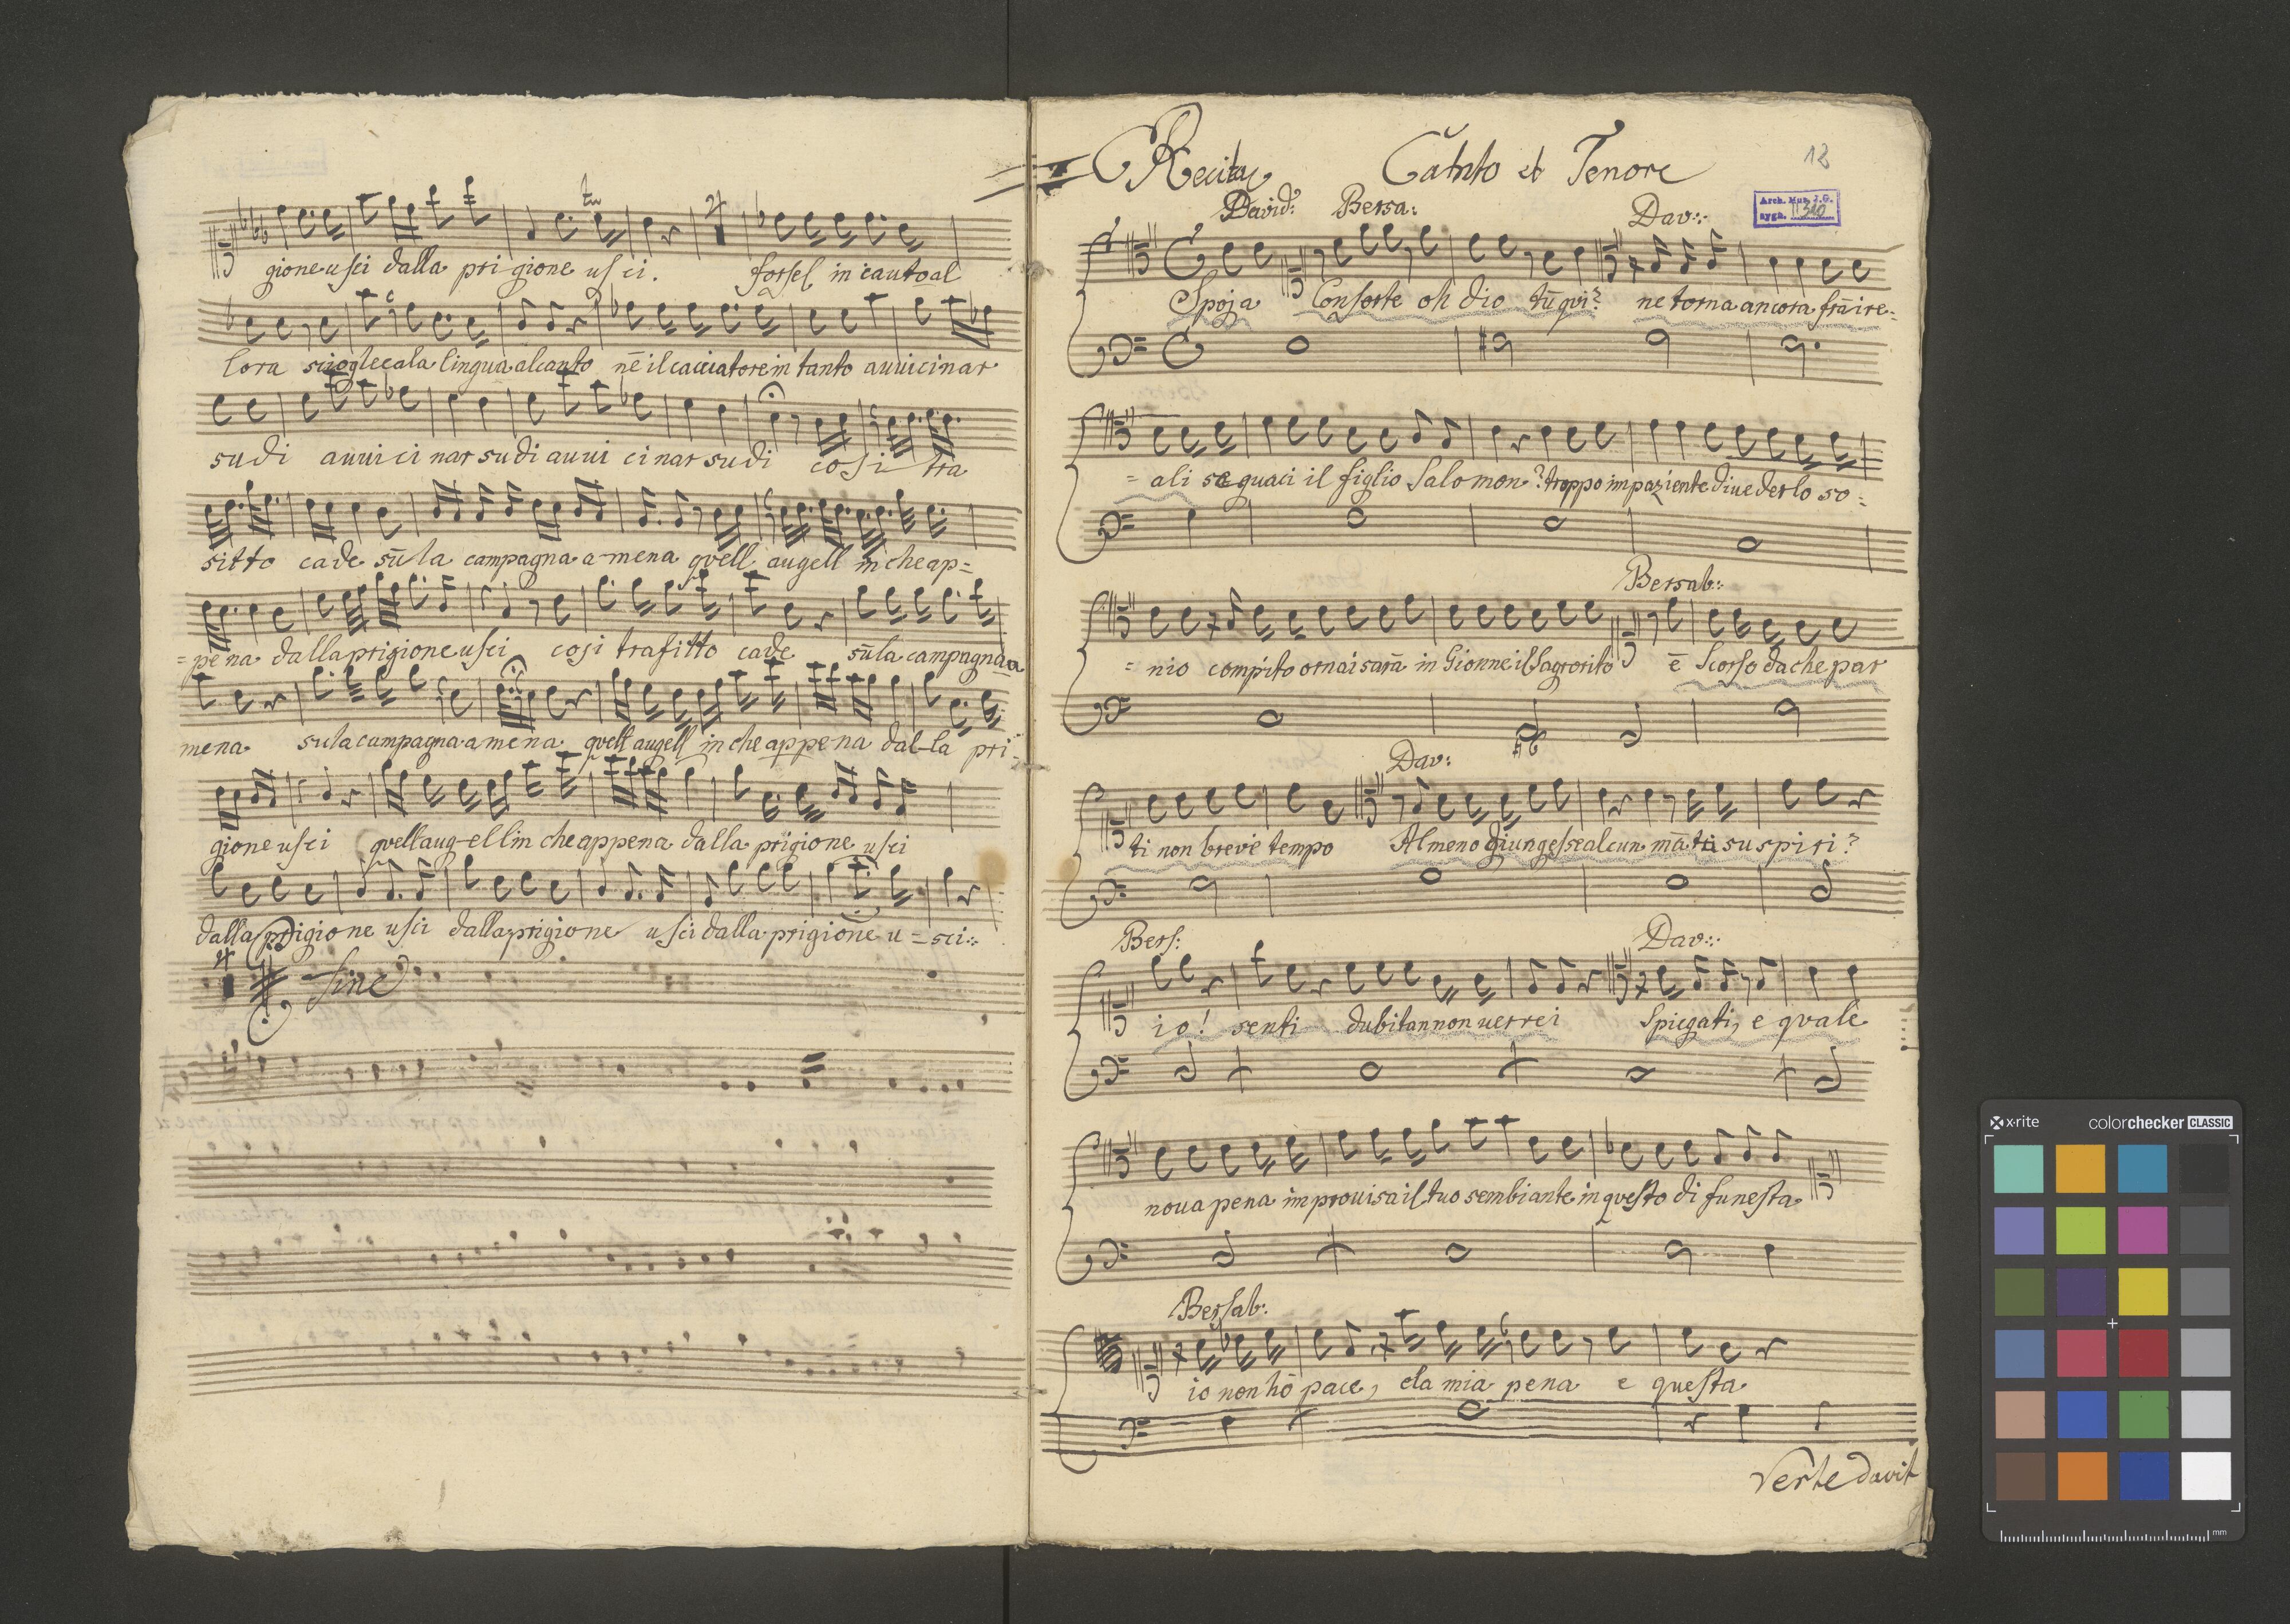 gione usci dalla pri gione us ci. forsel in cauto al
lora scioglecala lingua al canto nē il cacciatore in tanto avuicinar
sudi avuici nar sudi avui cinar sudi cosi tra
sitto cade sūla campagna a-mena qvell augell in che ap=
=pena dalla prigione usci cosi trafitto cade sūla campagna a
mena sula campagna amena qvell augell in che appena dal-la pri=
gione usci qvell aug-ellin che appena dalla prigione usci
dalla prigione usci dalla prigione usci dalla prigione u=sci:
fine
Recita Canto et Tenore
12
Arch. Muz. J.G.
sygn. II 310
David: Bersa: Dav:
Sposa Consorte oh dio tū qvi? ne torna ancora frā i re=
=ali se guaci il figlio Salomon? troppo impaziente di vederlo so=
Bersab:
=nio compito ornai sarā in Gionne il Sagrorito ē Scorso da che par
Dav:
ti non breve tempo Almeno giungesse alcun mā ti suspiri?
Bers: Dav:
io! senti dubitan non uerrei Spiegati, e qvale
noua pena improuisa il tuo sembiante in qvesto di funesta
Bersab:
io non hō pace, e la mia pena e questa
Verte davit
x-rite colorchecker CLASSIC
mm